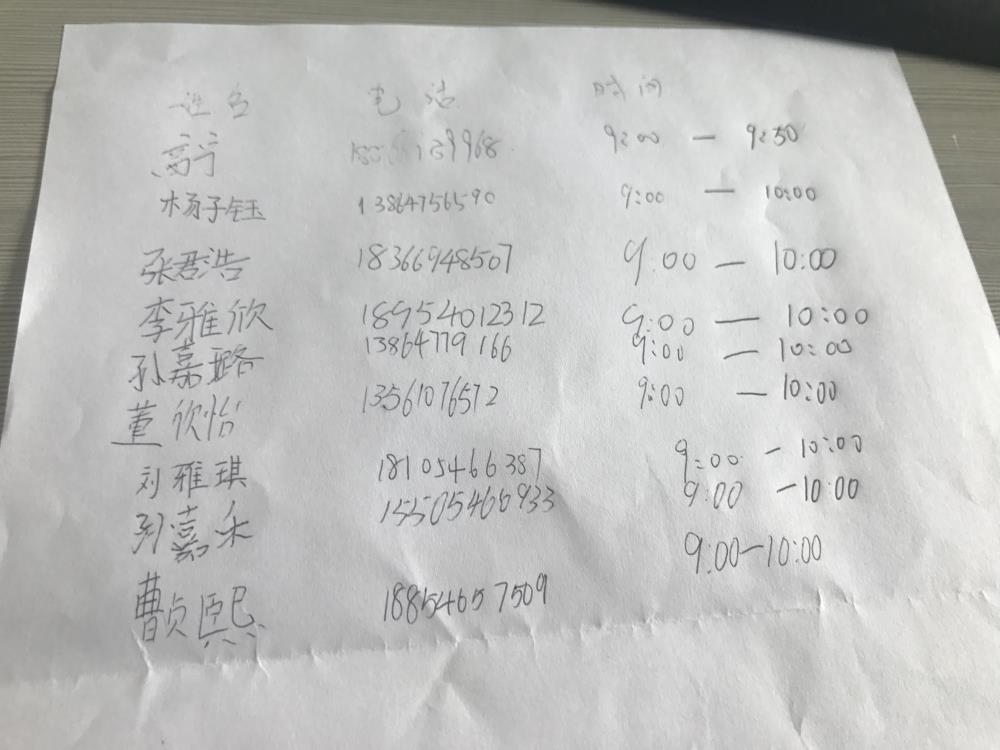 姓名 电话 时间
高宁 9:00 — 9:50
杨子钰 13864756590 9:00 — 10:00
张君浩 18366948507 9:00 — 10:00
李雅欣 18954012312 9:00 — 10:00
孙嘉璐 13864779166 9:00 — 10:00
董欣怡 13561076512 9:00 — 10:00
刘雅琪 18105466387 9:00 — 10:00
孙嘉禾 15505466933 9:00 — 10:00
曹贞熙 18854657509 9:00—10:00